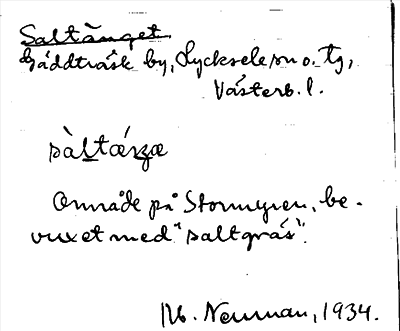 Saltänget
Gäddträsk by, Lycksele sn o. tg,
Västerb. l.
sàltæŋʒæ
Område på Stormyren, be-
vuxet med "saltgräs".
M. Neuman, 1934.